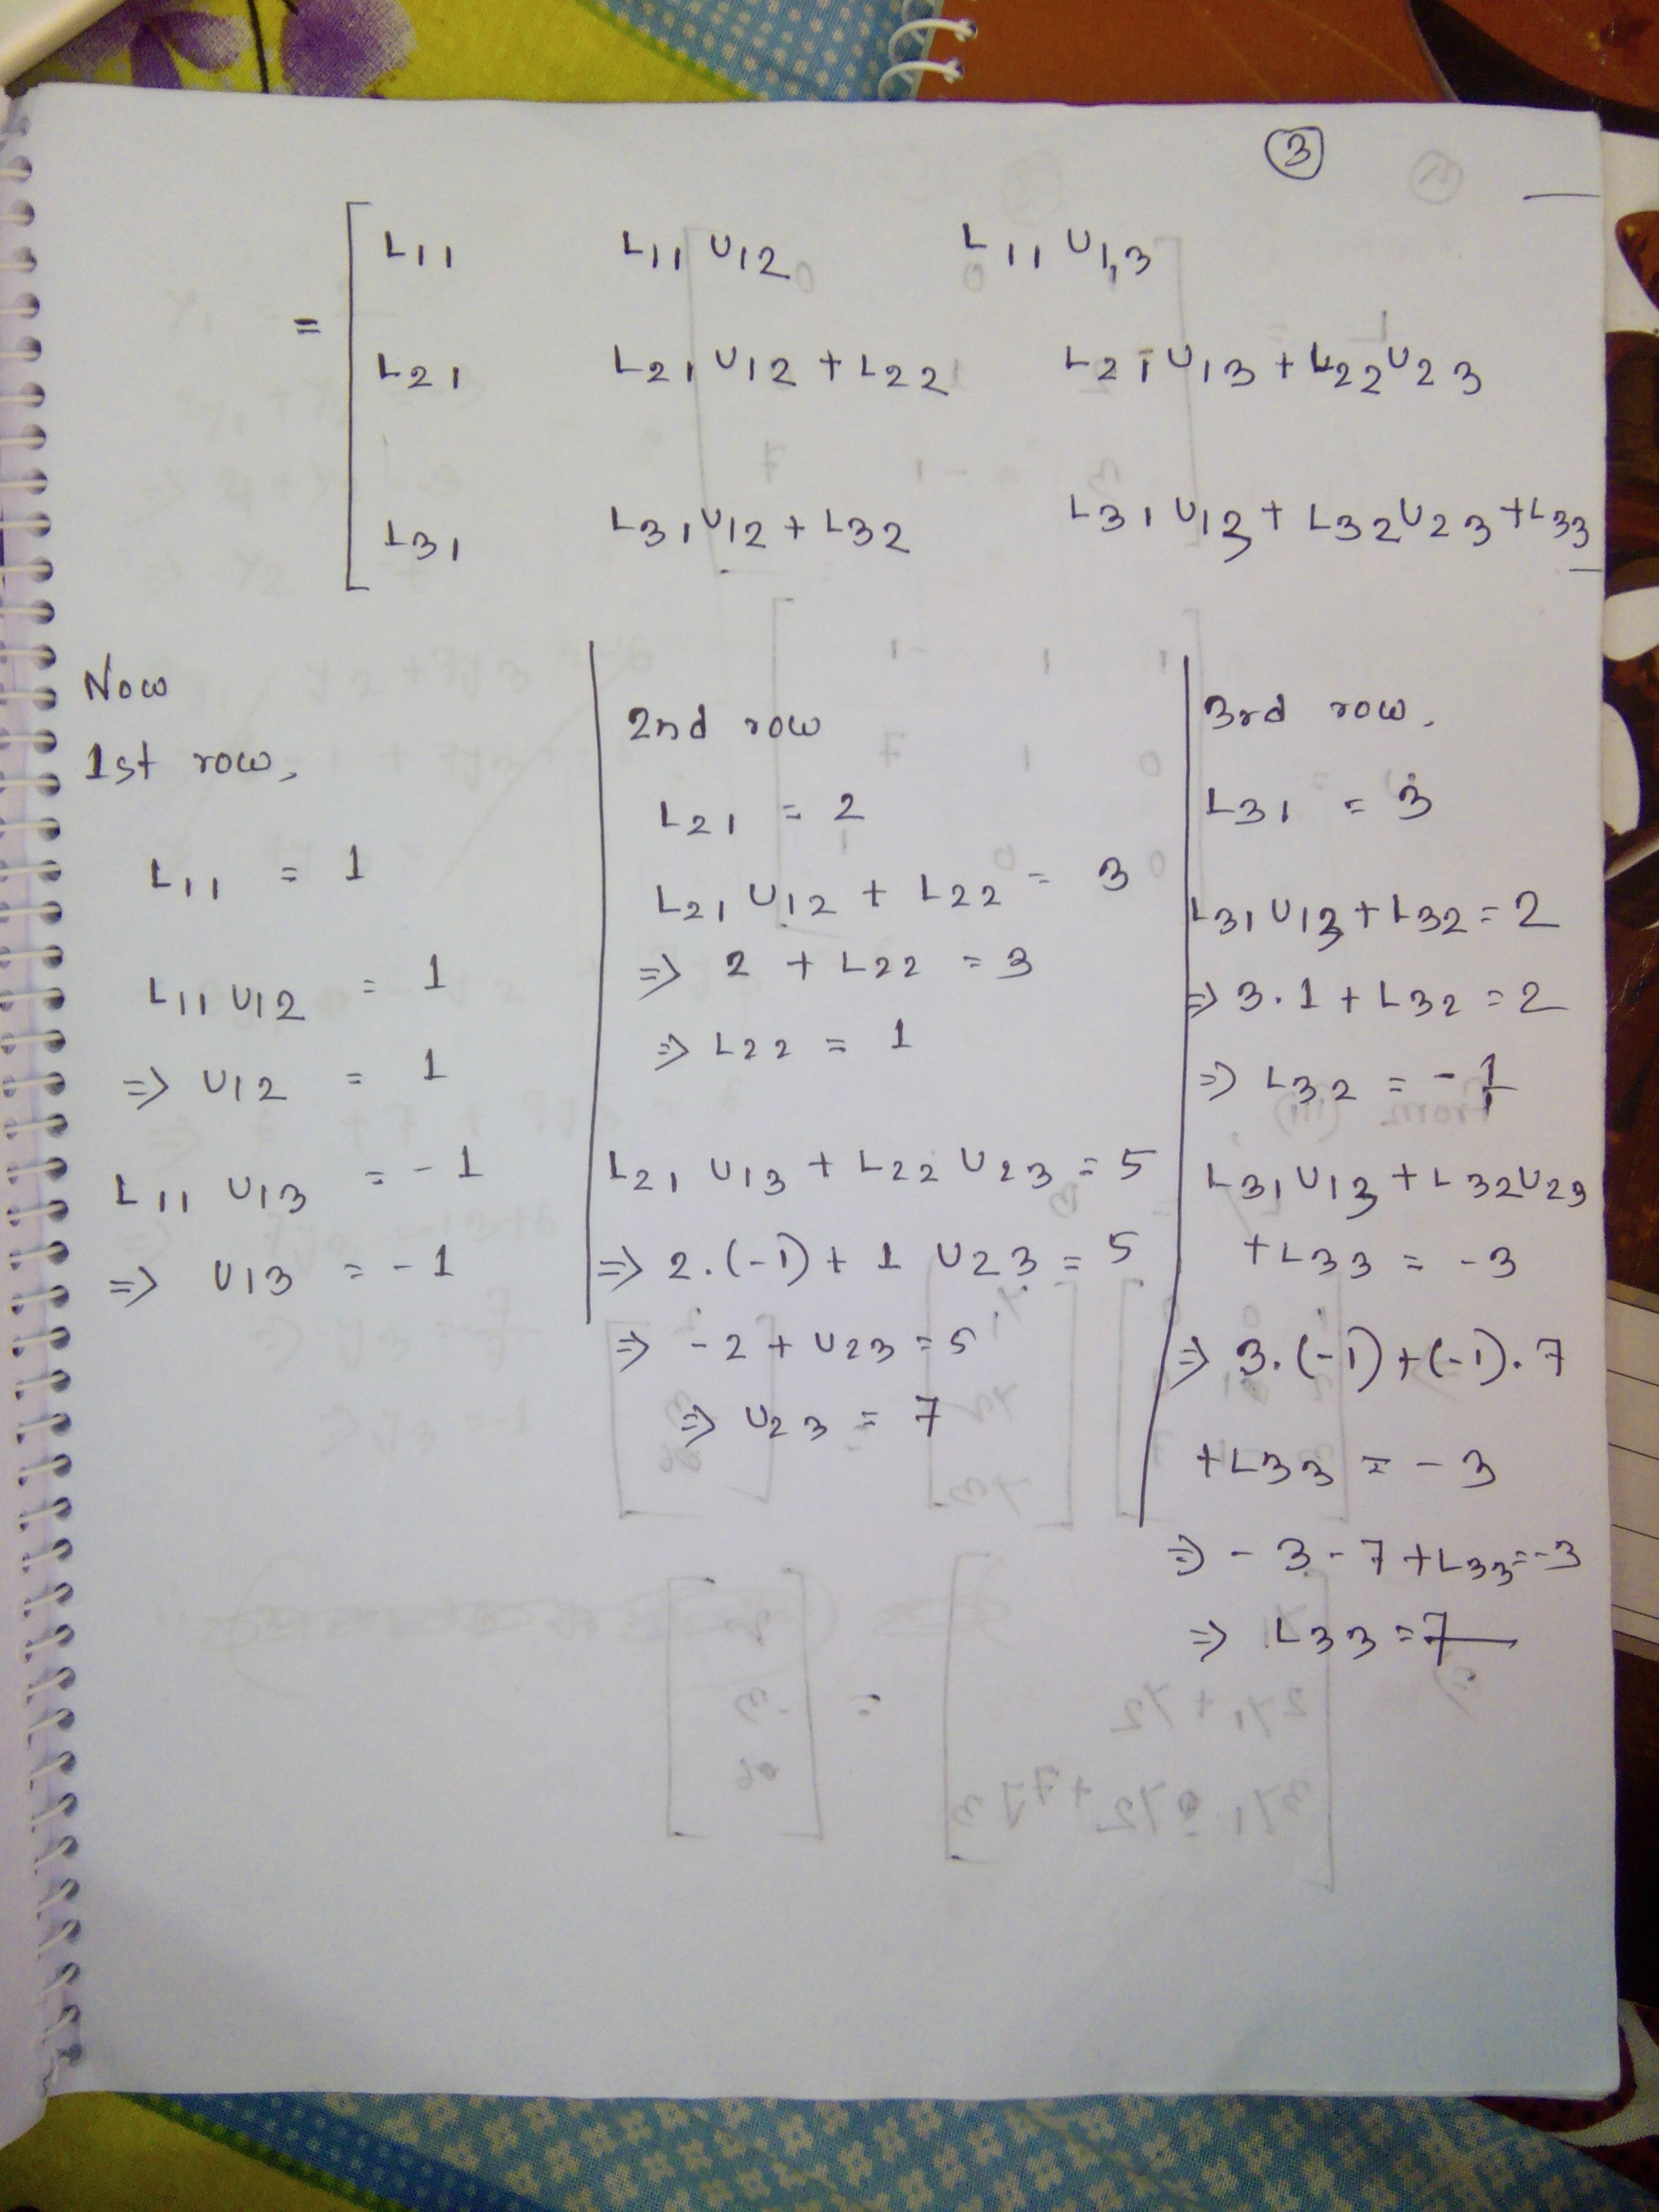 3
= [ L11 L11 U12 L11 U13
L21 L21 U12 + L22 L21 U13 + L22 U23
L31 L31 U12 + L32 L31 U13 + L32 U23 + L33
Now
1st row,
L11 = 1
L11 U12 = 1
=> U12 = 1
L11 U13 = -1
=> U13 = -1
2nd row
L21 = 2
L21 U12 + L22 = 3
=> 2 + L22 = 3
=> L22 = 1
L21 U13 + L22 U23 = 5
=> 2.(-1) + 1 U23 = 5
=> -2 + U23 = 5
=> U23 = 7
3rd row,
L31 = 3
L31 U12 + L32 = 2
=> 3.1 + L32 = 2
=> L32 = -1
L31 U13 + L32 U23
+ L33 = -3
=> 3.(-1) + (-1).7
+ L33 = -3
=> -3 -7 + L33 = -3
=> L33 = 7